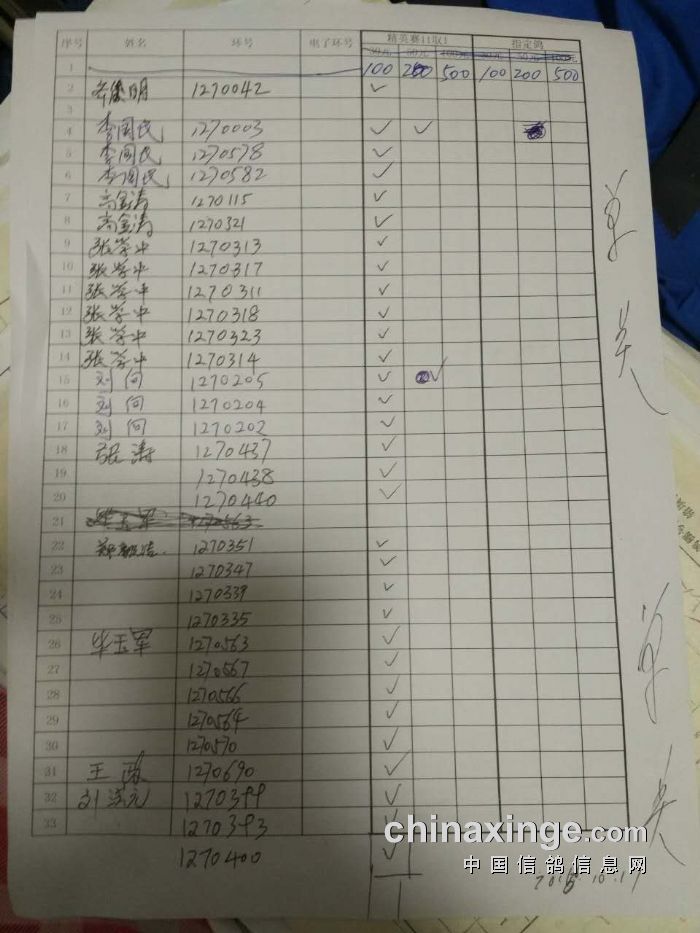 序号 姓名 环号 电子环号 精英赛11取1 指定鸽
30元 50元 100元 30元 50元 100元
1 100 200 500 100 200 500
2 明 1270042 ✓
3
4 李国民 1270003 ✓ ✓
5 李国民 1270578 ✓
6 李国民 1270582 ✓
7 高金涛 1270115 ✓
8 高金涛 1270321 ✓
9 张学中 1270313 ✓
10 张学中 1270317 ✓
11 张学中 1270311 ✓
12 张学中 1270318 ✓
13 张学中 1270323 ✓
14 张学中 1270314 ✓
15 刘向 1270205 ✓ ✓
16 刘向 1270204 ✓
17 刘向 1270202 ✓
18 张涛 1270437 ✓
19 1270438 ✓
20 1270440 ✓
21 毕玉军 1270563
22 1270351 ✓
23 1270347 ✓
24 1270339 ✓
25 1270335 ✓
26 毕玉军 1270563 ✓
27 1270567 ✓
28 1270566 ✓
29 1270564 ✓
30 1270570 ✓
31 王 1270690 ✓
32 1270399 ✓
33 1270393 ✓
1270400 ✓
单
关
单
关
chinaxinge.com
中国信鸽信息网